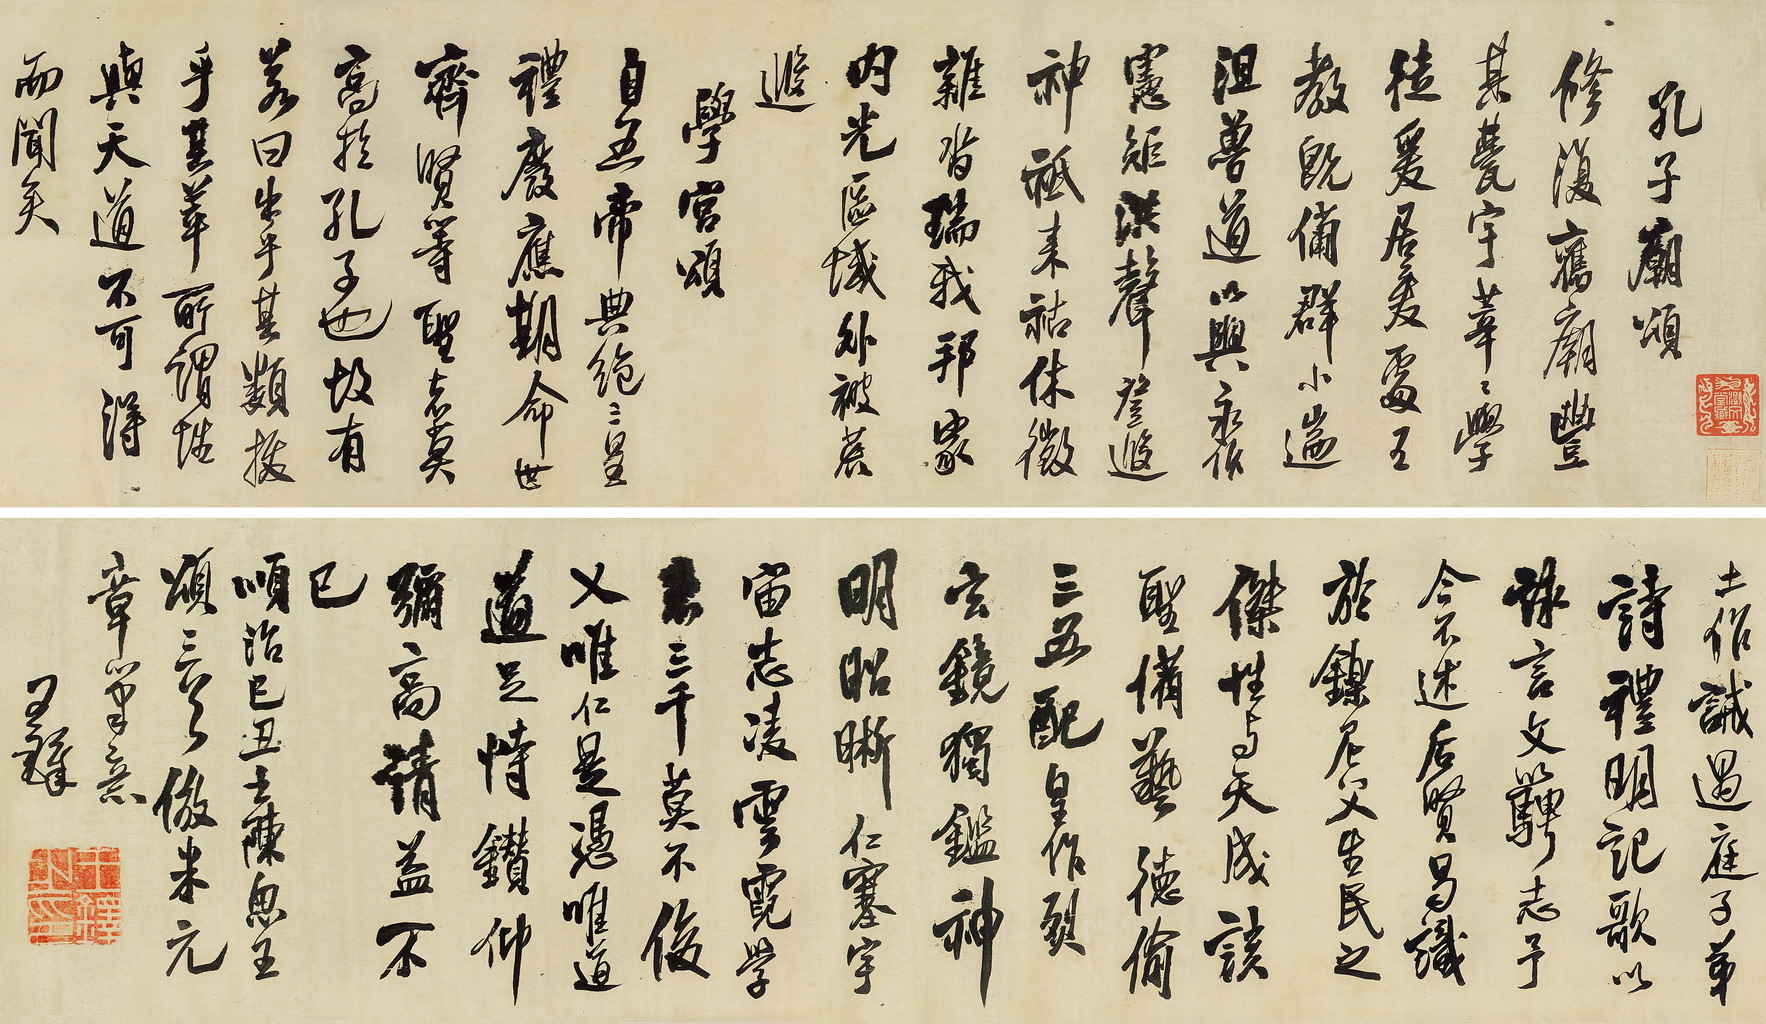 孔子廟頌
修復舊廟豐
其甍宇莘〻學
徒爰居爰處王
教既備群小遄
沮魯道以興永作
憲矩洪聲登遐
神祗來祜休徵
雜沓瑞我邦家
內光區域外被荒
遐
學宮頌
自五帝典絕三皇
禮廢應期命世
齊賢等聖者莫
高於孔子也故有
若曰出乎其類拔
乎其萃所謂性
與天道不可得
而聞矣
士作誡過庭子弟
詩禮明記歌以
詠言文以騁志予
今不述后賢曷識
於鑠尼父生民之
傑性與天成該
聖備藝德倫
三五配皇作烈
玄鏡獨鑑神
明昭晰仁塞宇
宙志凌雲霓學
者三千莫不俊
乂唯仁是憑唯道
道足恃鑽仰
彌高請益不
已
順治己丑書陳思王
頌三首倣米元
章筆意
王鐸